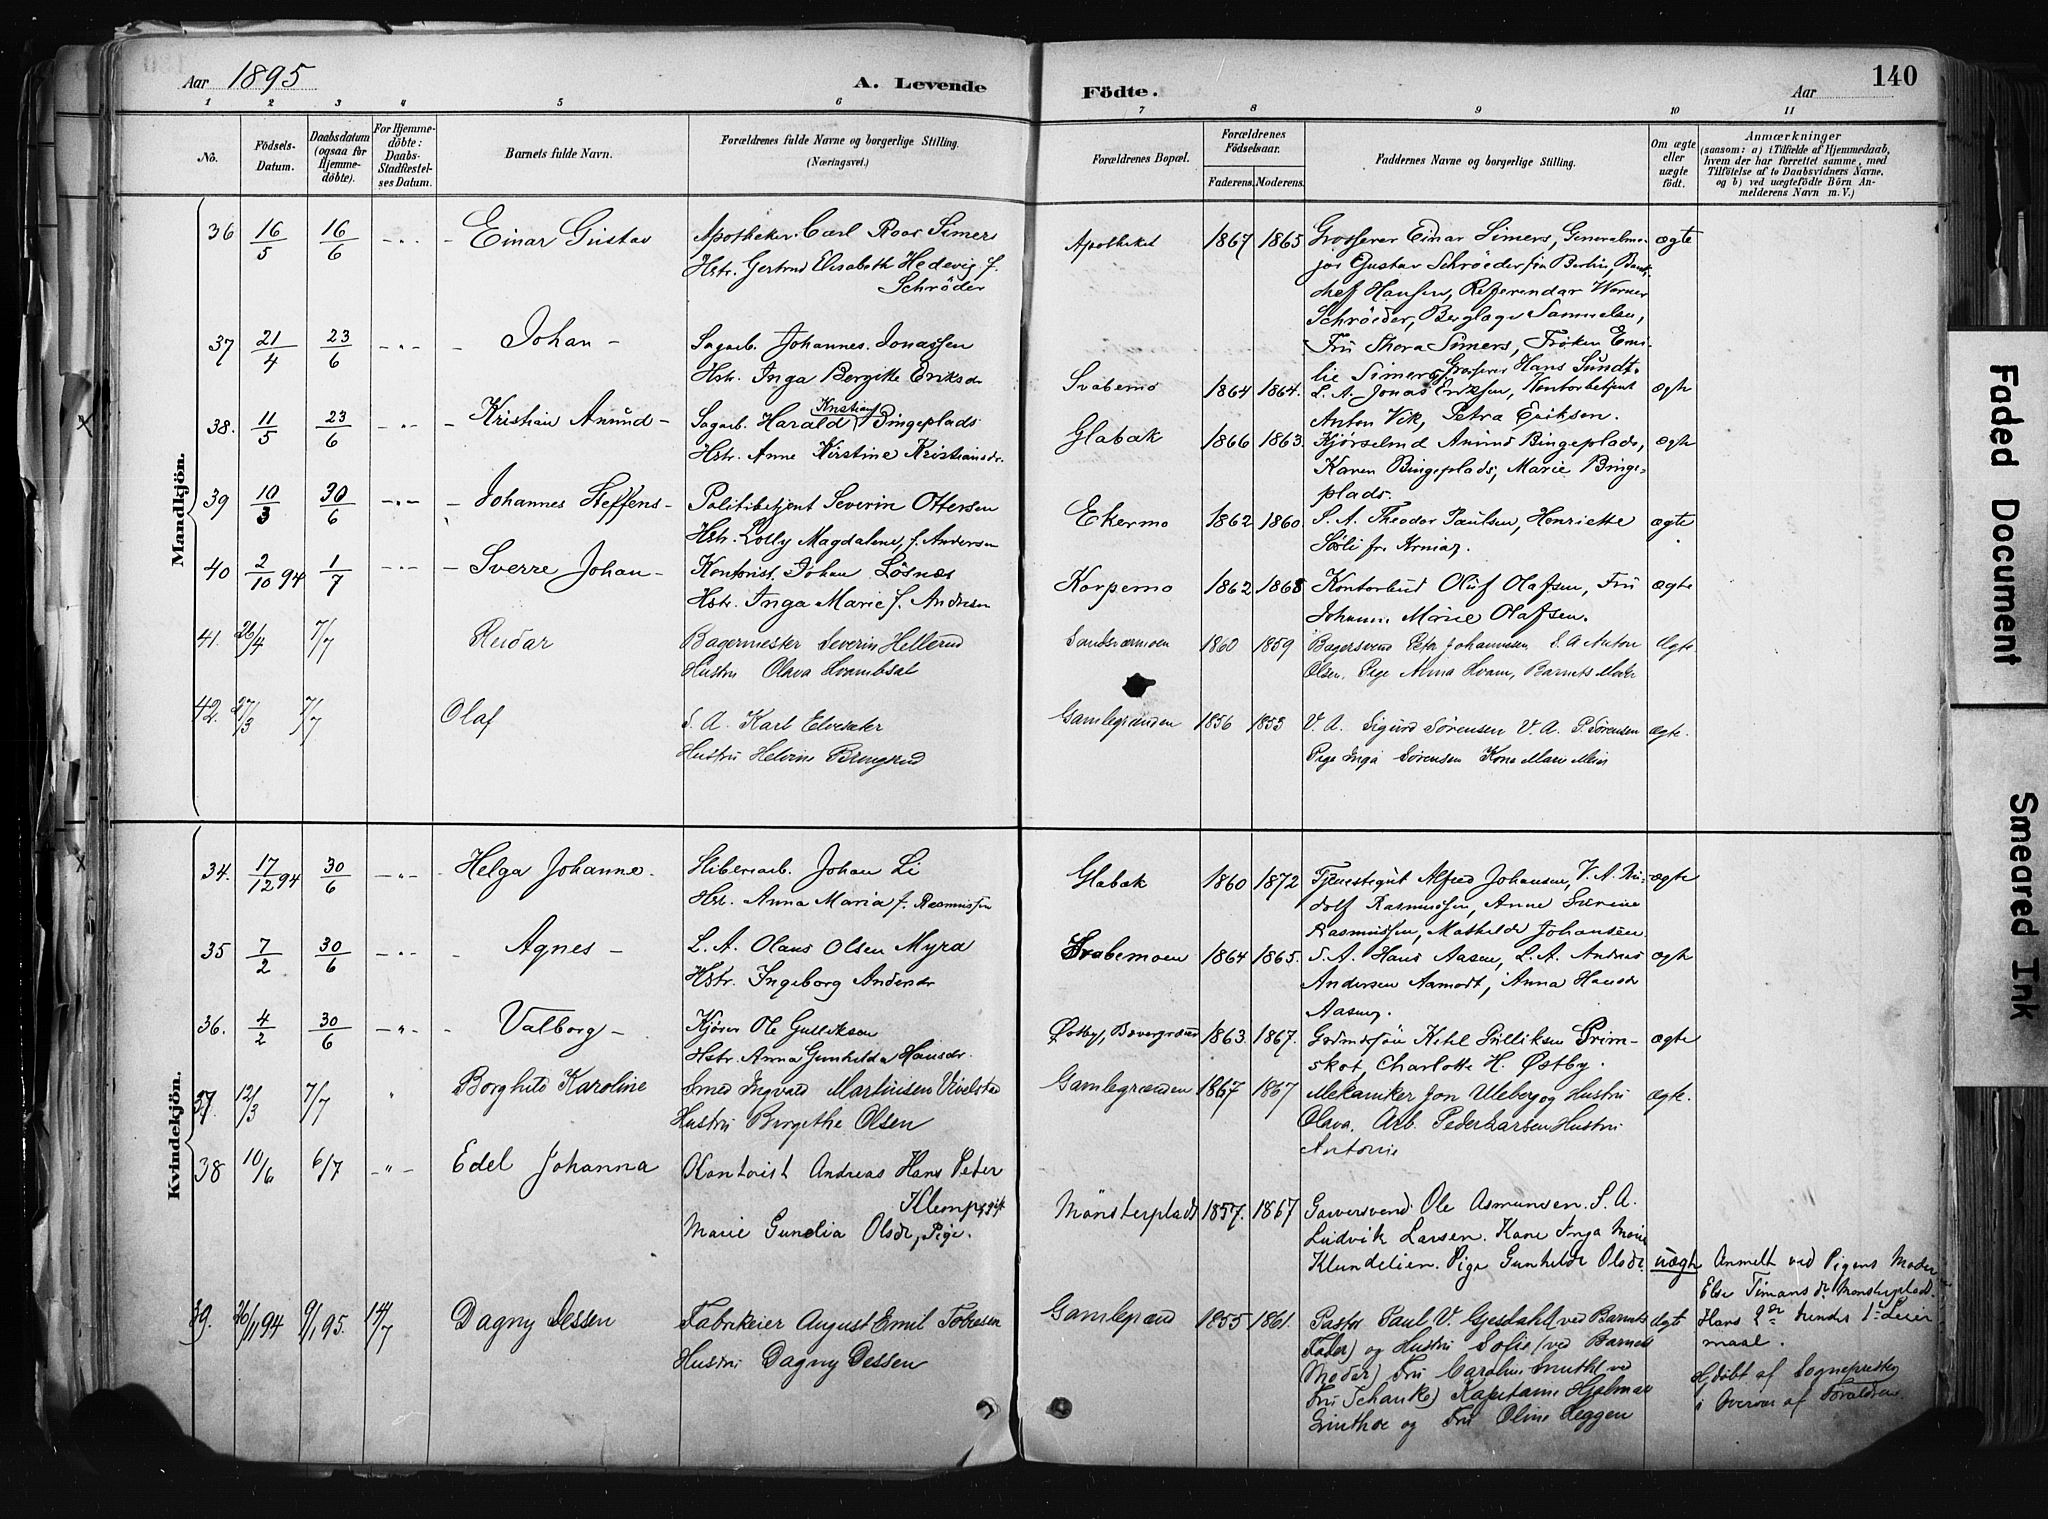 Aar 1895
A. Levende
Födte.
Aar
140
1 2 3 4 5 6 7 8 9 10 11
No.
Födsels-Datum.
Daabsdatum (ogsaa for Hjemmedöbte).
For Hjemmedöbte: Daabs-Stadfæstelses Datum.
Barnets fulde Navn.
Forældrenes fulde Navne og borgerlige Stilling. (Næringsvei.)
Forældrenes Bopæl.
Forældrenes Födselsaar.
Faderens.
Moderens.
Faddernes Navne og borgerlige Stilling.
Om ægte eller uægte födt.
Anmærkninger
(saasom: a) i Tilfælde af Hjemmedaab,
hvem der har forrettet samme, med
Tilföielse af to Daabsvidners Navne,
og b) ved uægtefödte Börn An-
melderens Navn m. V.)
Mandkjön.
36 16/5 16/6 -"- Einar Gustav Apotheker Carl Roar Simers Apotheket 1867 1865 Grosserer Einar Simers, Generalma- ægte
Hstr. Gertrud Elisabeth Hedevig f. jor Gustav Schröeder fra Berlin, Bank-
Schröder chef Hansen, Referendar Werner
Schröeder, Berglage Samuelsen,
37 21/4 23/6 -"- Johan Sagarb. Johannes Jonassen Fru Thora Simers, Frøken Emi-
Hstr. Inga Bergitte Eriksdr lie Simers, Grosserer Hans Sundt.
Svabemo 1864 1864. L. A. Jonas Eriksen, Kontorbetjent ægte
Anton Vik, Petra Eriksen.
38. 11/5 23/6 -"- Kristian Amund Sagarb. Harald Kristian Bingeplads Glabak 1866 1863. Kjørselmd Amund Bingeplads, ægte
Hstr. Anne Kirstine Kristiansdr. Karen Bingeplads, Marie Binge-
plads.
39 10/3 30/6 -"- Johannes Steffens Politibetjent Severin Ottersen Ekermo 1862 1860 S. A. Theodor Paulsen, Henriette ægte
Hstr. Lolly Magdalene, f. Andersen
40 2/10 94 1/7 -"- Sverre Johan Kontorist Johan Løsnæs Korpemo 1862 1868 Kontorbud Oluf Olafsen, Fru ægte
Hstr. Inga Marie f. Andersen Johanne Marie Olafsen.
41. 26/4 7/7 Reidar Bagermester Severin Hellerud 1860 1859 Bagersvend Peter Johannesen S. A. Anton Ægte
Hustru Olava Olsen. Pige Anna Hvam, Barnets Moder
42. 27/3 7/7 Olaf S. A. Karl Elvesæter Gamlegrænden 1856 1853 V. A. Sigurd Sørensen V. A. P. Sørensen ægte.
Hustru Helvine Pige Inga Sørensen Kone Marie
Kvindekjön.
34. 17/12 94 30/6 -"- Helga Johanne Sliberiarb. Johan Li Glabak 1860 1872 Tjenestegut Alfred Johansen, V. A. Ru- ægte
Hstr. Anna Maria f. Rasmussen dolf Rasmussen, Anne Gurine
Rasmussen, Mathilde Johansen
35 7/2 30/6 -"- Agnes L. A. Olaus Olsen Myra Svabemoen 1864 1865. S. A. Hans Aasen, L. A. Andreas ægte
Hstr. Ingeborg Andersdr Andersen Aamodt, Anna Hansdr
Aasen.
36. 4/2 30/6 -"- Valborg Kjører Ole Gulliksen Østby, Bævergrænd 1863. 1867. Gaardmdssøn Ketil Gulliksen Grim- ægte
Hstr. Anna Gunhilda Hansdr. skot, Charlotte H. Østby.
37. 12/3 7/7 " Borghild Karoline Smed Ingvald Martinisen Gamlegrænden 1867 1867 Mekaniker Jon Uleberg og Hustru ægte.
Hustru Birgithe Olsen Olava, Arb. Peder Larsen Hustru
Antonie
38 10/6 6/7 -"- Edel Johanna Kontorist Andreas Hans Peter
Klemp, gift Mønsterplads 1857. 1867 Garversvend Ole Asmundsen. S. A.
Marie Gunelia Olsdr, Pige. Ludvik Larsen. Kone Inga Marie
Klundelien. Pige Gunhilde Olsdr. uægte Anmelt ved Pigens Moder
Else Timansdr Mønsterplads.
Hans 2den hendes 1ste Leier
maal.
39. 26/11 94 9/1 95. 14/7 Dagny Dessen Fabrikeier August Emil Tobiesen Gamlegrænd 1855 1861. Pastor Paul V. Gjesdahl (ved Barnets Ægte
Hustru Dagny Dessen Fader) og Hustru Sofie (ved Barnets
Moder) Fru Caroline Smith (ved
Fru Schanke) Kaptein Hjalmar
og Fru Oline Heggen
Hjdøbt af Sognepresten
i Overvær af Forældrene
Faded Document
Smeared Ink